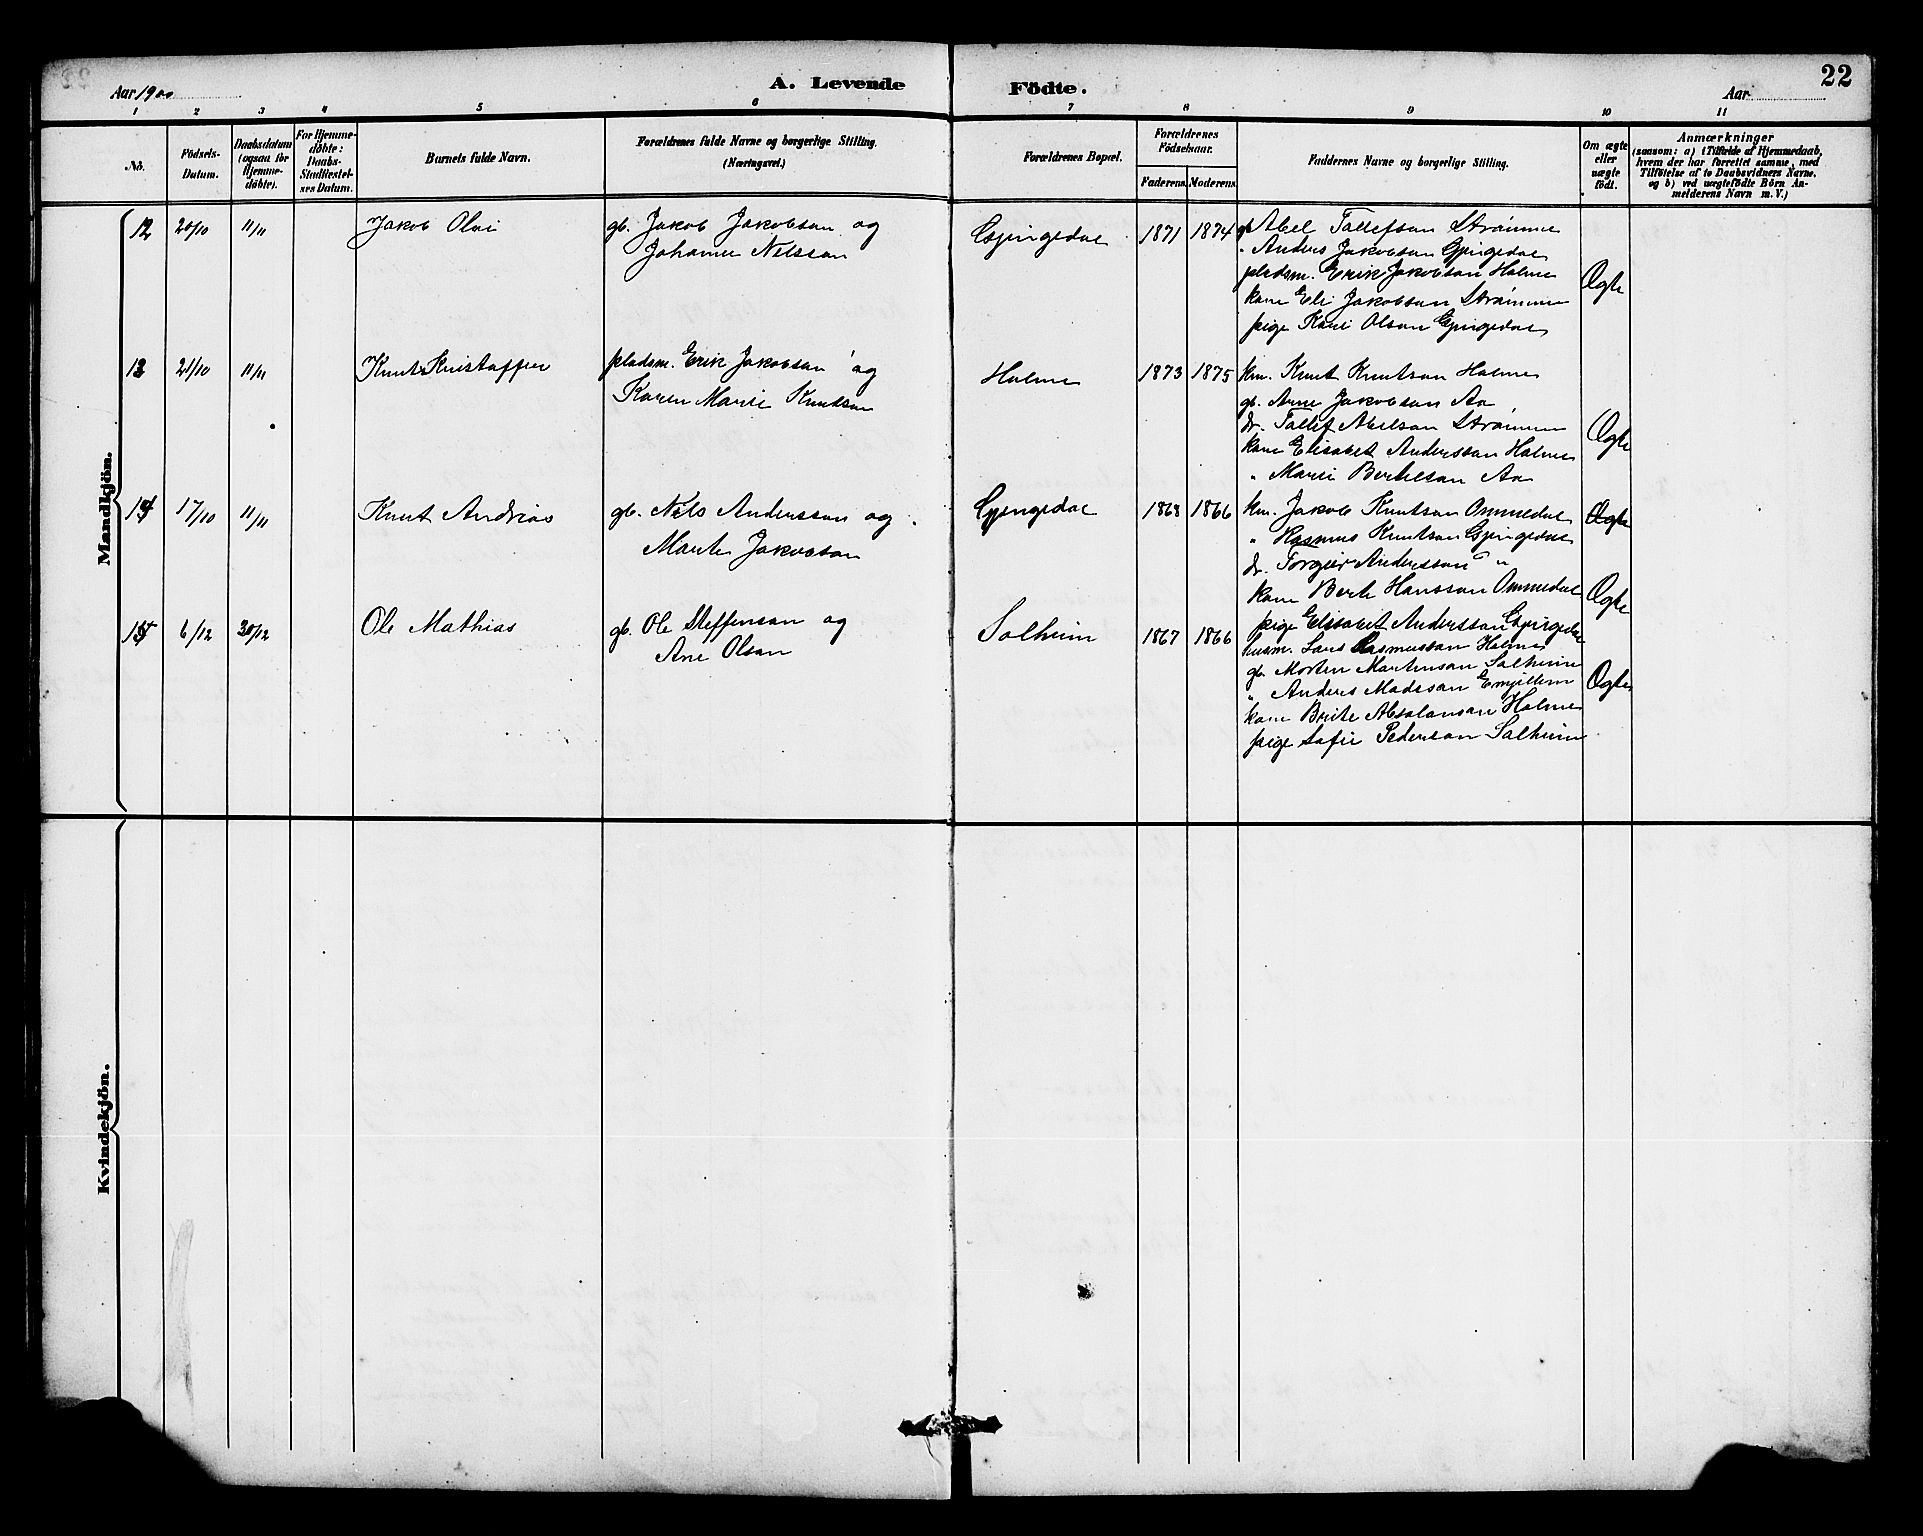 Aar 1900
A. Levende
Födte.
Aar
22
1 2 3 4 5 6 7 8 9 10 11
No.
Födsels-Datum.
Daabsdatum (ogsaa for Hjemme-döbte).
For Hjemme-döbte: Daabs-Stadfæstel-ses Datum.
Barnets fulde Navn.
Forældrenes fulde Navne og borgerlige Stilling. (Næringsvei.)
Forældrenes Bopæl.
Forældrenes Födselsaar.
Faderens. Moderens.
Faddernes Navne og borgerlige Stilling.
Om ægte eller uægte födt.
Anmærkninger
(saasom: a) i Tilfælde af Hjemmedaab, hvem der har forrettet samme, med Tilföielse af to Daabsvidners Navne, og b) ved uægtefödte Börn An-melderens Navn m. V.)
Mandkjön.
12 20/10 11/11 Jakob Olai gb. Jakob Jakobson og
Johanne Nelsson
Gjengedal 1871 1874
gb Abel Tollefson Strømme
" Anders Jakobson Gjengedal
pladsm. Erik Jakobson Holme
kone Eli Jakobson Strømme
pige Kari Olson Gjengedal
Ægte
13 21/10 11/11 Knut Kristoffer pladsm. Erik Jakobson og
Karen Marie Knutson
Holme 1873 1875
km. Knut Knutson Holme
gb. Arne Jakobson Aa
dr. Tollef Abelson Strømme
kone Elisabet Andersson Holme
" Marie Bertelson Aa
Ægte
14 17/10 11/11 Knut Andrias gb. Nels Andersson og
Marte Jakobson
Gjengedal 1868 1866
km. Jakob Knutson Ommedal
" Rasmus Knutson Gjengedal
dr. Torgeir Andersson "
kone Berte Hansson Ommedal
pige Elisabet Andersson Gjengedal
Ægte
Ægte
15 6/12 30/12 Ole Mathias gb. Ole Steffenson og
Ane Olson
Solheim 1867 1866
husm. Lars Rasmusson Holme
gb. Morten Martinson Solheim
" Anders Madsson Emjellem
kone Brite Absalonson Holme
pige Sofie Pederson Solheim
Ægte
Kvindekjön.